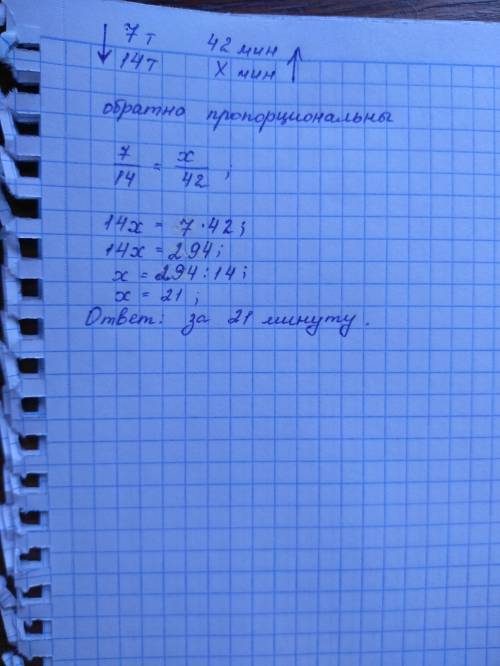 7 т 42 мин
14 т X мин
обратно пропорциональны
7/14 = x/42 ;
14x = 7·42;
14x = 294;
x = 294 : 14;
x = 21 ;
Ответ: за 21 минуту.